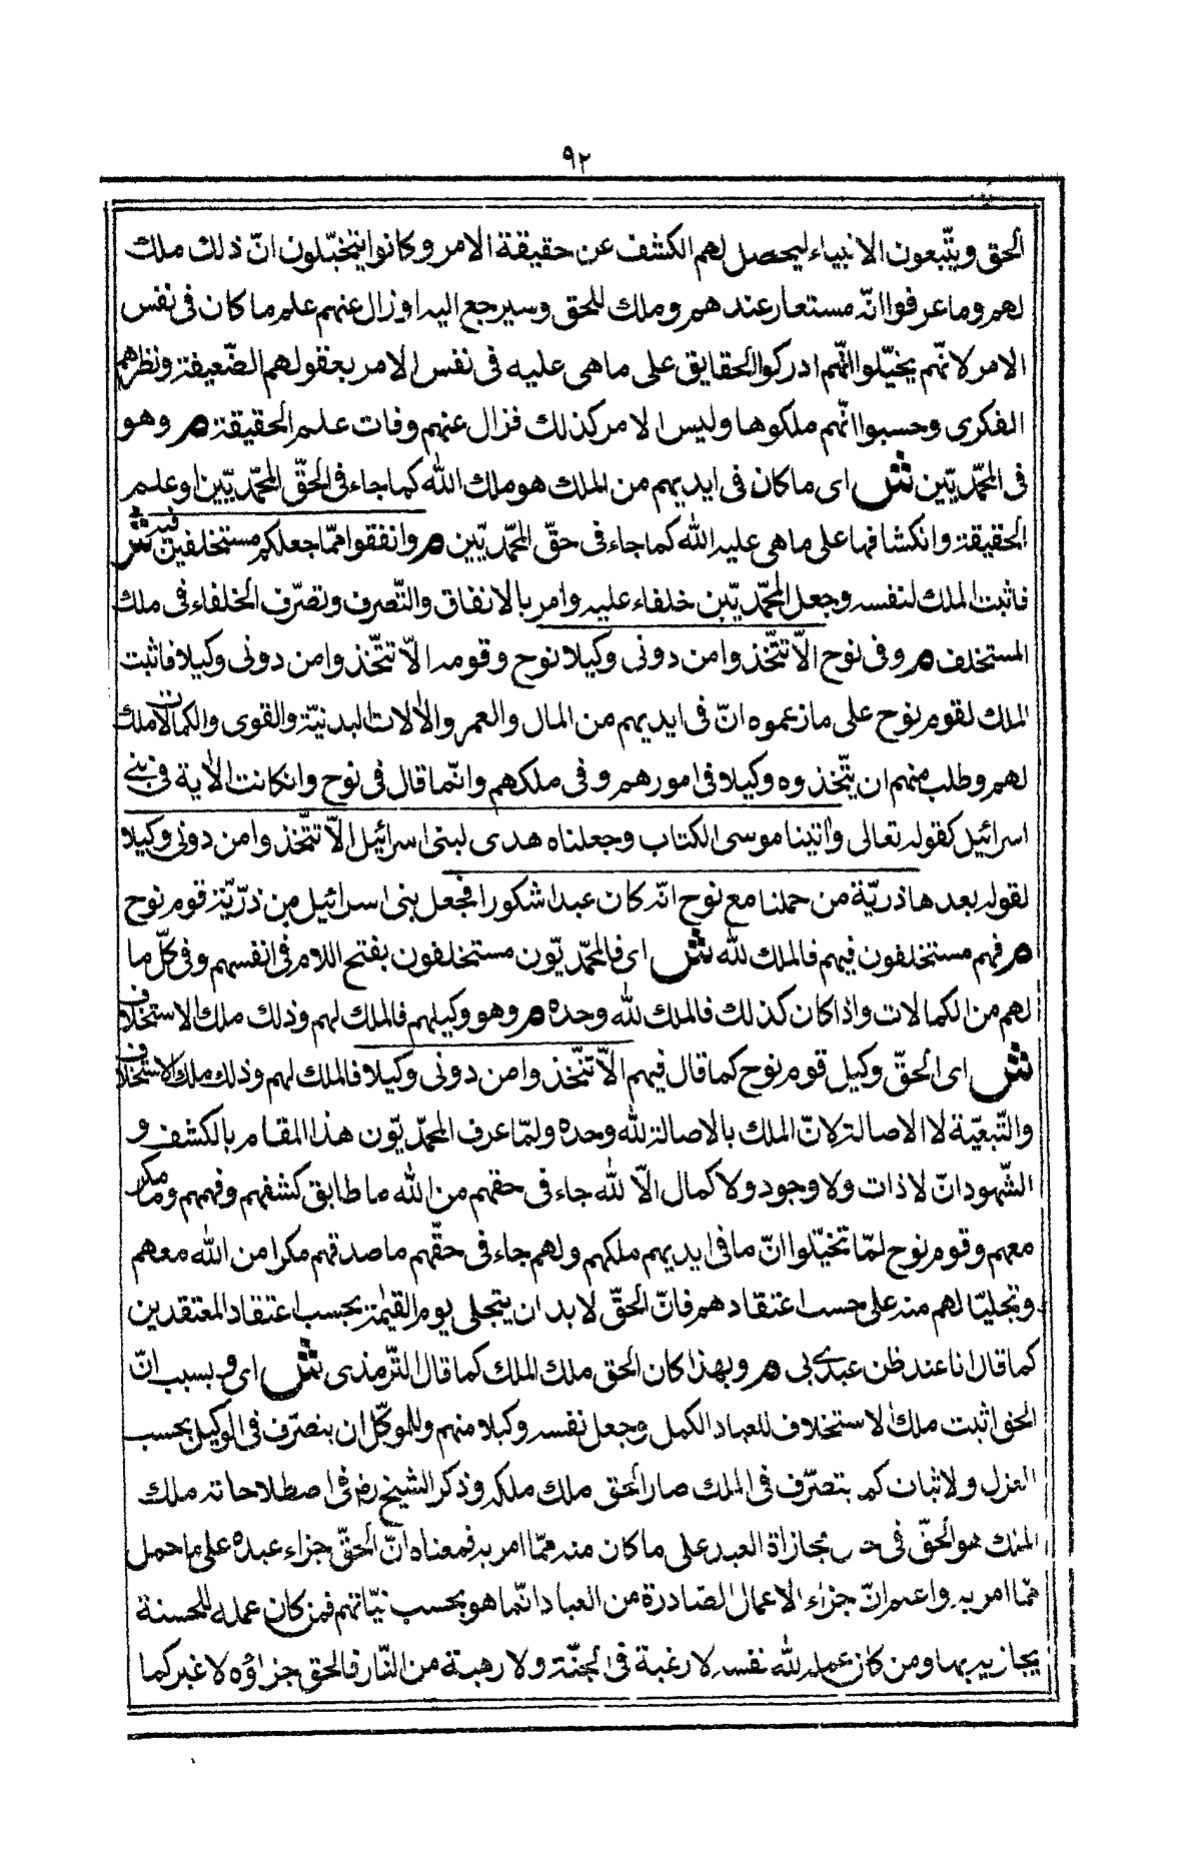 ٩٢
الحق ويتّبعون الانبياء ليحصل لهم الكشف عن حقيقة الامر وكانوا يتخيّلون انّ ذلك ملك
لهم وما عرفوا انّه مستعار عندهم وملك للحق وسيرجع اليه اوزال عنهم علم ما كان فى نفس
الامر لانّهم يخيّلوا انّهم ادركوا الحقايق على ماهى عليه فى نفس الامر بعقولهم الضّعيفة ونظرهم
الفكرى وحسبوا انّهم ملكوها وليس الامر كذلك فزال عنهم وفات علم الحقيقة م وهو
فى المحمّديّين ش اى ماكان فى ايديهم من الملك هو ملك الله كما جاء فى الحقّ المحمّديّين اوعلم
الحقيقة وانكشافها على ماهى عليه الله كما جاء فى حقّ المحمّديّين م وانفقوا ممّا جعلكم مستخلفين فيه ش
فاثبت الملك لنفسه وجعل المحمّديّين خلفاء عليه وامر بالانفاق والتّصرف وتصرّف الخلفاء فى ملك
المستخلف م وفى نوح الّا تتّخذوا من دونى وكيلا نوح وقومه الّا تتّخذوا من دونى وكيلا فاثبت
الملك لقوم نوح على مازعموه انّ فى ايديهم من المال والعمر والالات البدنيّة والقوى والكمالات ملك
لهم وطلب منهم ان يتّخذوه وكيلا فى امورهم وفى ملكهم وانّما قال فى نوح وانكانت الآية فى بنى
اسرائيل كقوله تعالى وآتينا موسى الكتاب وجعلناه هدى لبنى اسرائيل الّا تتّخذوا من دونى وكيلا
لقوله بعدها ذريّة من حملنا مع نوح انّه كان عبدا شكورا فجعل بنى اسرائيل من ذرّيّة قوم نوح
م فهم مستخلفون فيهم فالملك لله ش اى فالمحمّديّون مستخلفون بفتح اللام فى انفسهم وفى كلّ ما
لهم من الكمالات واذا كان كذلك فالملك لله وحده م وهو وكيلهم فالملك لهم وذلك ملك الاستخلاف
ش اى الحقّ وكيل قوم نوح كما قال فيهم الّا تتّخذوا من دونى وكيلا فالملك لهم وذلك ملك الاستخلاف
والتّبعيّة لا الاصالة لانّ الملك بالاصالة لله وحده ولمّا عرف المحمّديّون هذا المقام بالكشف و
الشّهود انّ لا ذات ولا وجود ولا كمال الّا لله جاء فى حقهم من الله ما طابق كشفهم وفهمهم وما مكر
معهم وقوم نوح لمّا تخيّلوا انّ ما فى ايديهم ملكهم ولهم جاء فى حقّهم ما صدقهم مكرا من الله معهم
وتجليّا لهم منه على حسب اعتقادهم فانّ الحقّ لابد ان يتجلى يوم القيمة بحسب اعتقاد المعتقدين
كما قال انا عند ظن عبدى بى م وبهذا كان الحق ملك الملك كما قال التّرمذى ش اى وبسبب انّ
الحق اثبت ملك الاستخلاف للعباد الكمل وجعل نفسه وكيلا منهم وللموكّل ان يتصرّف فى الوكيل بحسب
العزل والاثبات كما يتصرّف فى الملك صار الحق ملك ملكه وذكر الشيخ رض فى اصطلاحاته ملك
الملك هو الحقّ فى مجازاة العبد على ما كان منه ممّا امر به فمعناه انّ الحقّ جزاء عبده على ما حمل
ممّا امر به واعلم انّ جزاء الاعمال الصّادرة من العباد انّما هو بحسب نيّاتهم فمن كان عمله للحسنة
يجازيه بها ومن كان عمله لله نفسه لا رغبة فى الجنّة ولا رهبة من النّار فالحق جزاؤه لا غير كما